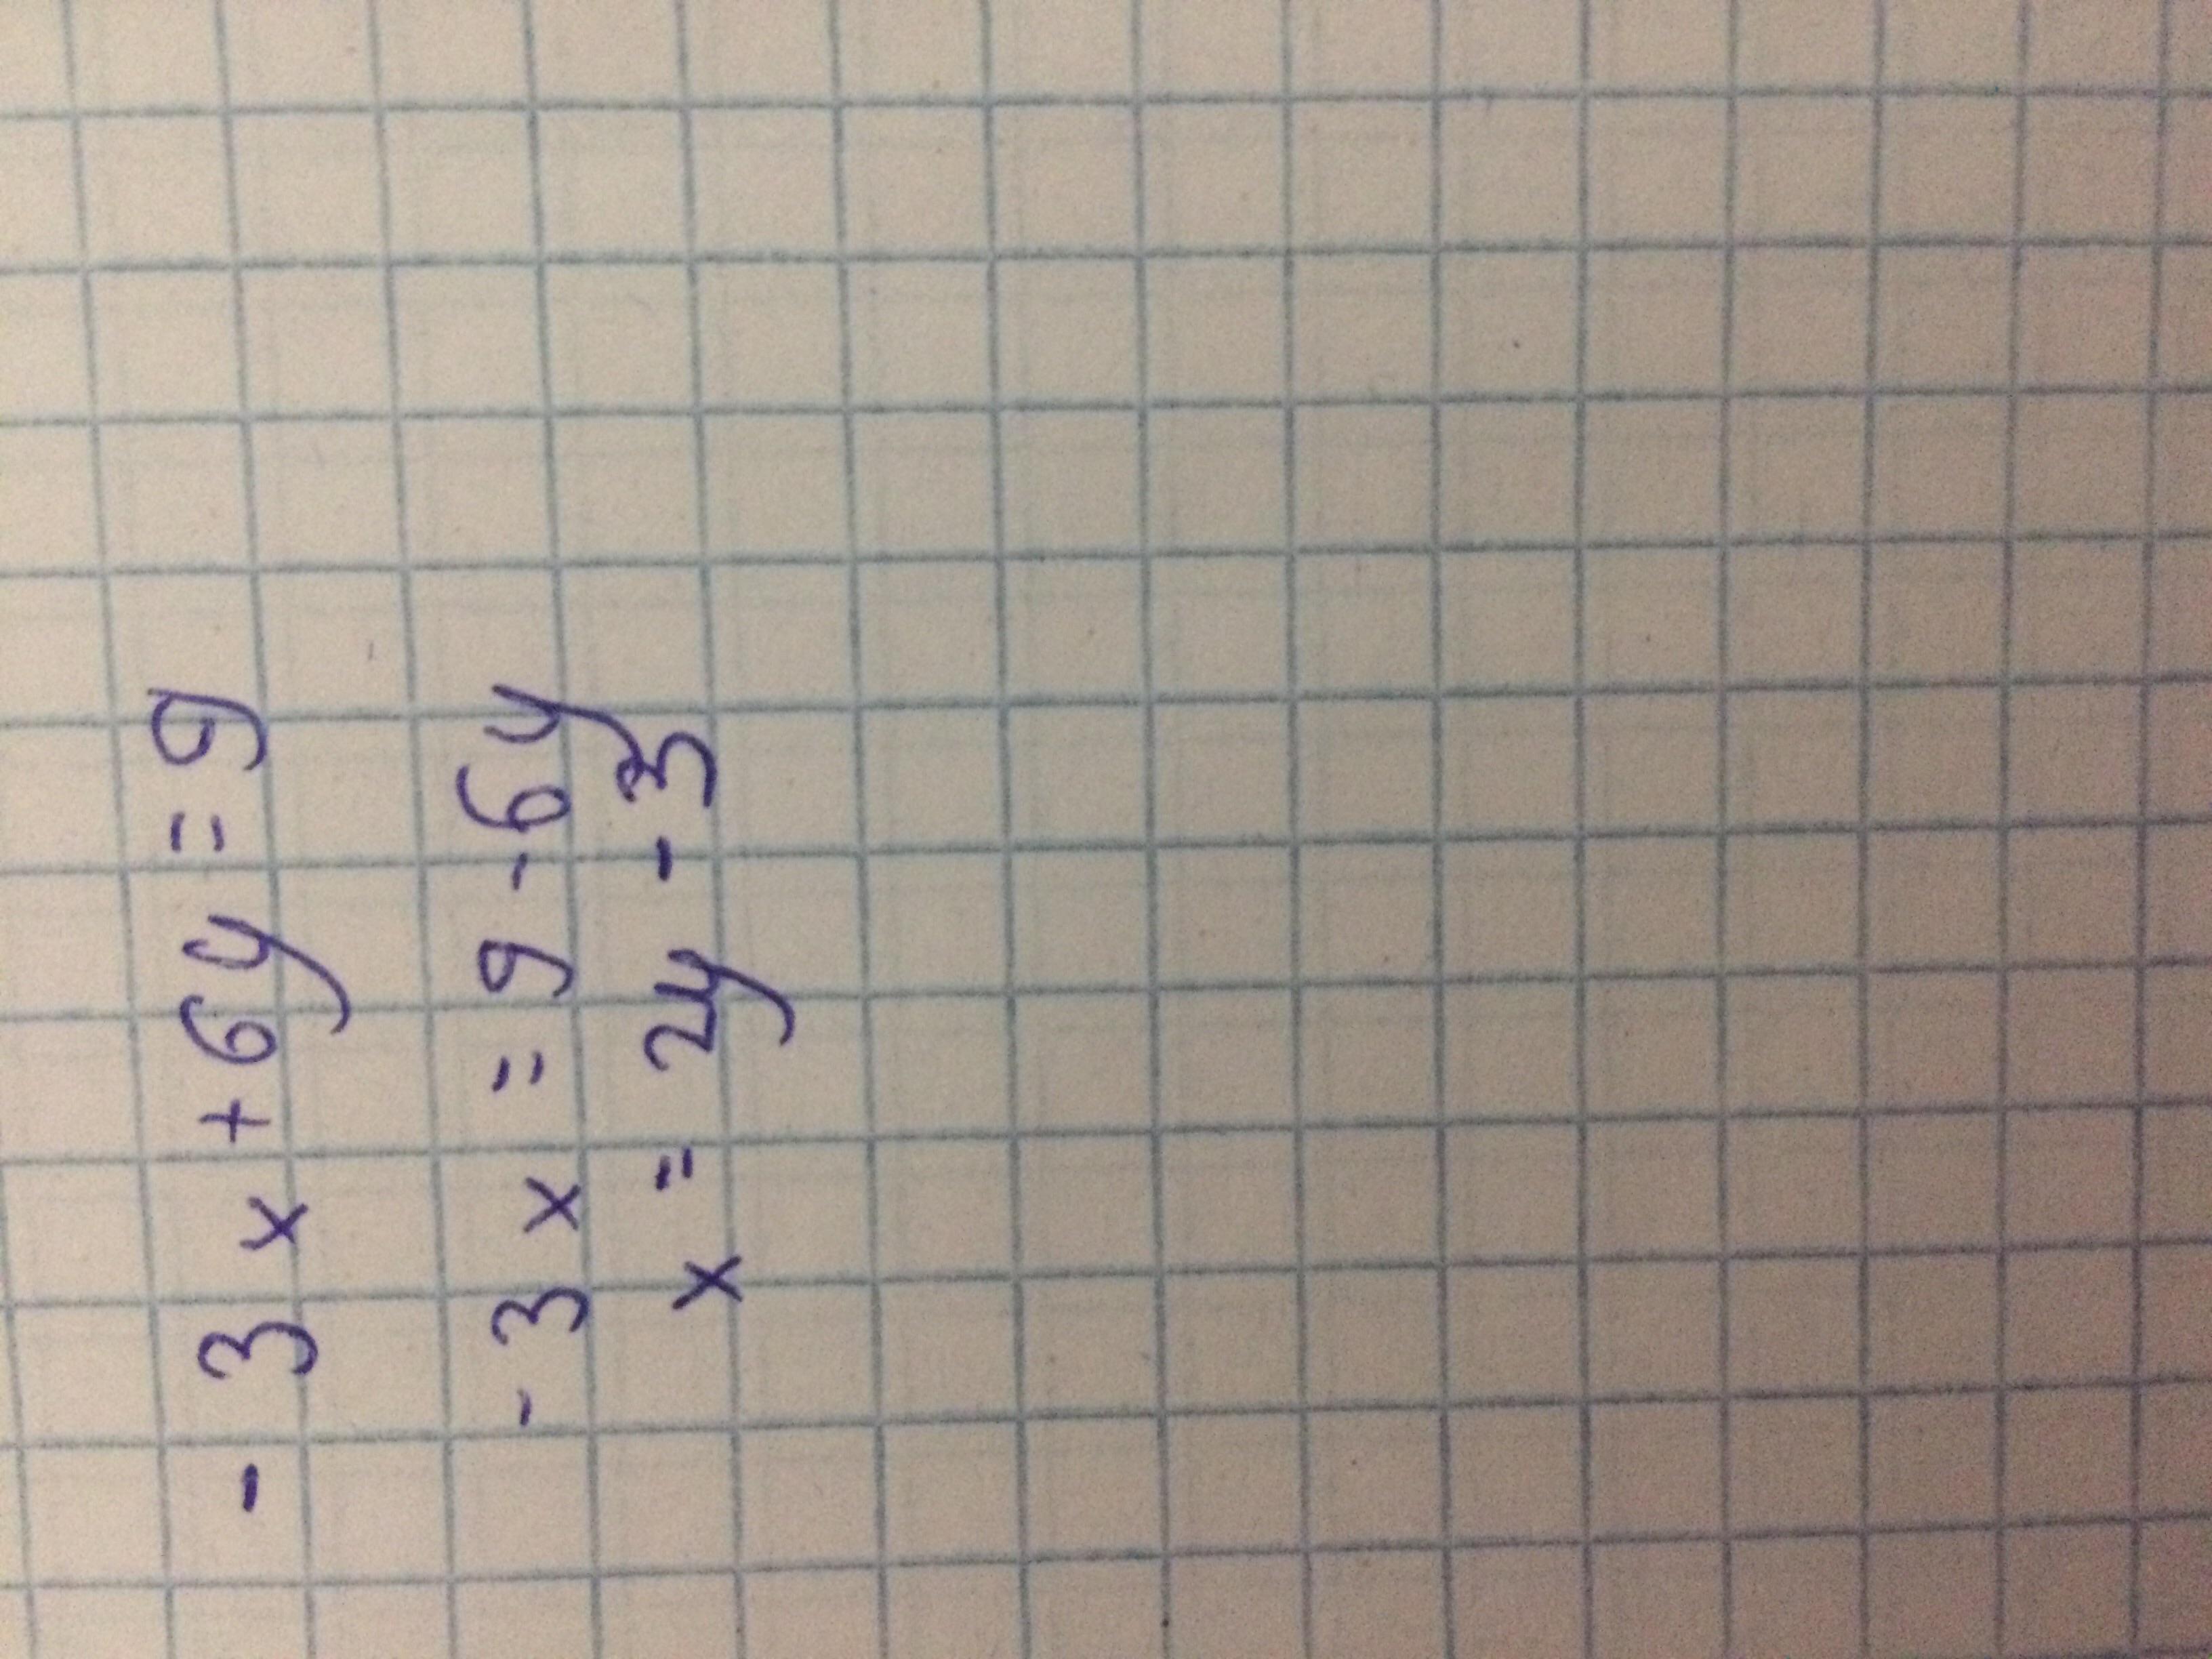 - 3x + 6y = 9
- 3x = 9 - 6y
x = 2y - 3